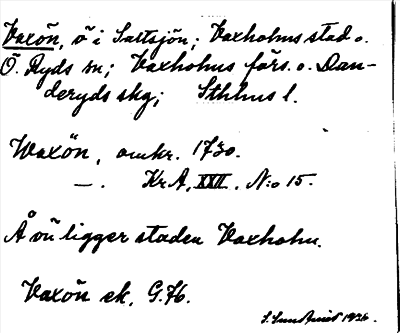 Vaxön, ö i Saltsjön; Vaxholms stad o.
Ö. Ryds sn; Vaxholms förs. o. Dan-
deryds skg; Sthlms l.
Waxön, omkr. 1730.
—. Kr A, XXII, N:o 15.
Å ön ligger staden Vaxholm.
Vaxön ek, G. 76.
1926.